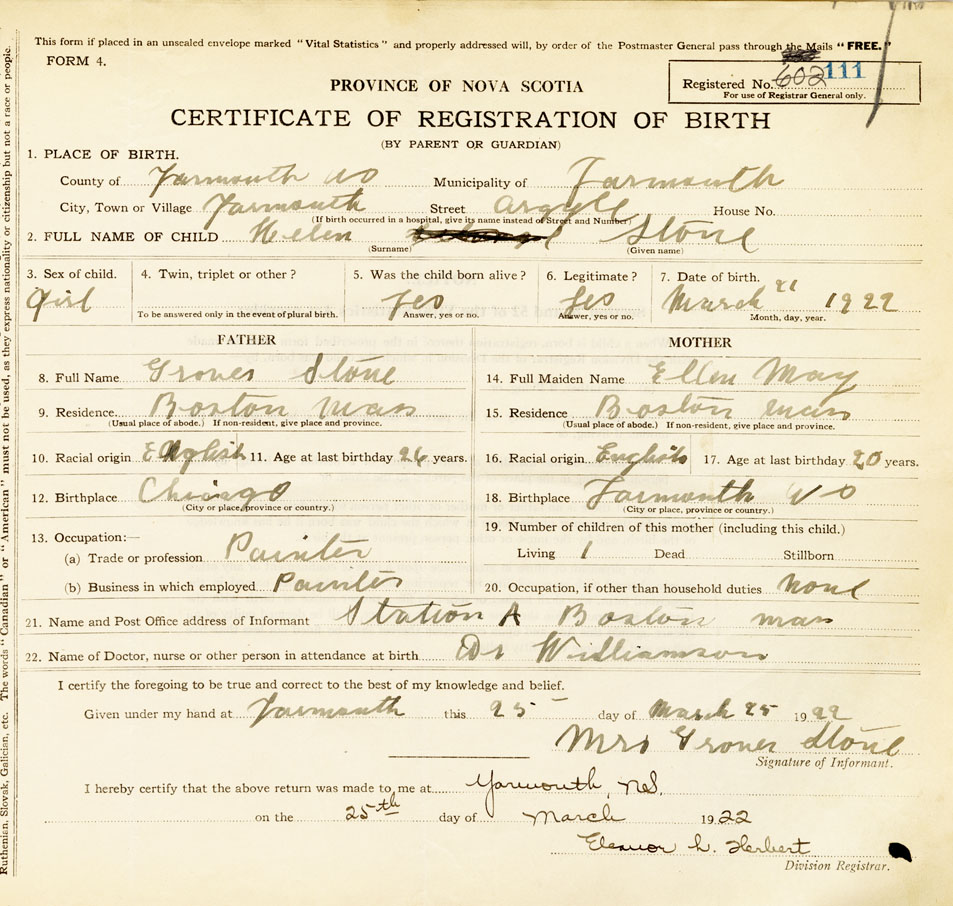 This form if placed in an unsealed envelope marked "Vital Statistics" and properly addressed will, by order of the Postmaster General pass through the Mails "FREE."
FORM 4.
Registered No. 602 111
For use of Registrar General only.
PROVINCE OF NOVA SCOTIA
CERTIFICATE OF REGISTRATION OF BIRTH
(BY PARENT OR GUARDIAN)
1. PLACE OF BIRTH.
County of Yarmouth Municipality of Yarmouth
City, Town or Village Yarmouth Street Argyll House No.
(If birth occurred in a hospital, give its name instead of Street and Number)
2. FULL NAME OF CHILD Helen Stone
(Surname) (Given name)
3. Sex of child. 4. Twin, triplet or other? 5. Was the child born alive? 6. Legitimate? 7. Date of birth.
Girl yes yes March 21 1922
To be answered only in the event of plural birth. Answer, yes or no. Answer, yes or no. Month, day, year.
FATHER MOTHER
8. Full Name Grover Stone 14. Full Maiden Name Ellen May
9. Residence. Boston Mass 15. Residence Boston Mass
(Usual place of abode.) If non-resident, give place and province. (Usual place of abode.) If non-resident, give place and province.
10. Racial origin English 11. Age at last birthday 26 years. 16. Racial origin English 17. Age at last birthday 20 years.
12. Birthplace Chicago 18. Birthplace Yarmouth
(City or place, province or country.) (City or place, province or country.)
19. Number of children of this mother (including this child.)
13. Occupation:—
(a) Trade or profession Painter Living 1 Dead Stillborn
(b) Business in which employed Painter 20. Occupation, if other than household duties none
21. Name and Post Office address of Informant Station A Boston mass
22. Name of Doctor, nurse or other person in attendance at birth Dr Williamson
I certify the foregoing to be true and correct to the best of my knowledge and belief.
Given under my hand at Yarmouth this 25 day of March 25 1922
Mrs Grover Stone
Signature of Informant.
I hereby certify that the above return was made to me at Yarmouth, N.S.
on the 25th day of March 1922
Eleanor L. Herbert
Division Registrar.
Ruthenian, Slovak, Galician, etc. The words "Canadian" or "American" must not be used, as they express nationality or citizenship but not a race or people.